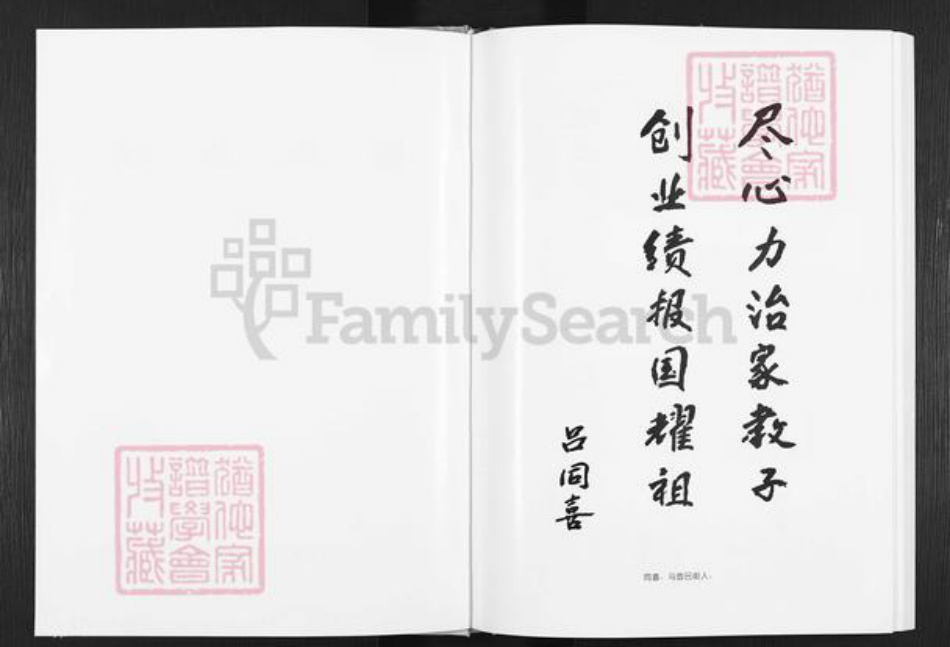 尽心力治家教子
创业绩报国耀祖
吕同喜
猶他家
譜學會
收藏
猶他家
譜學會
收藏
FamilySearch